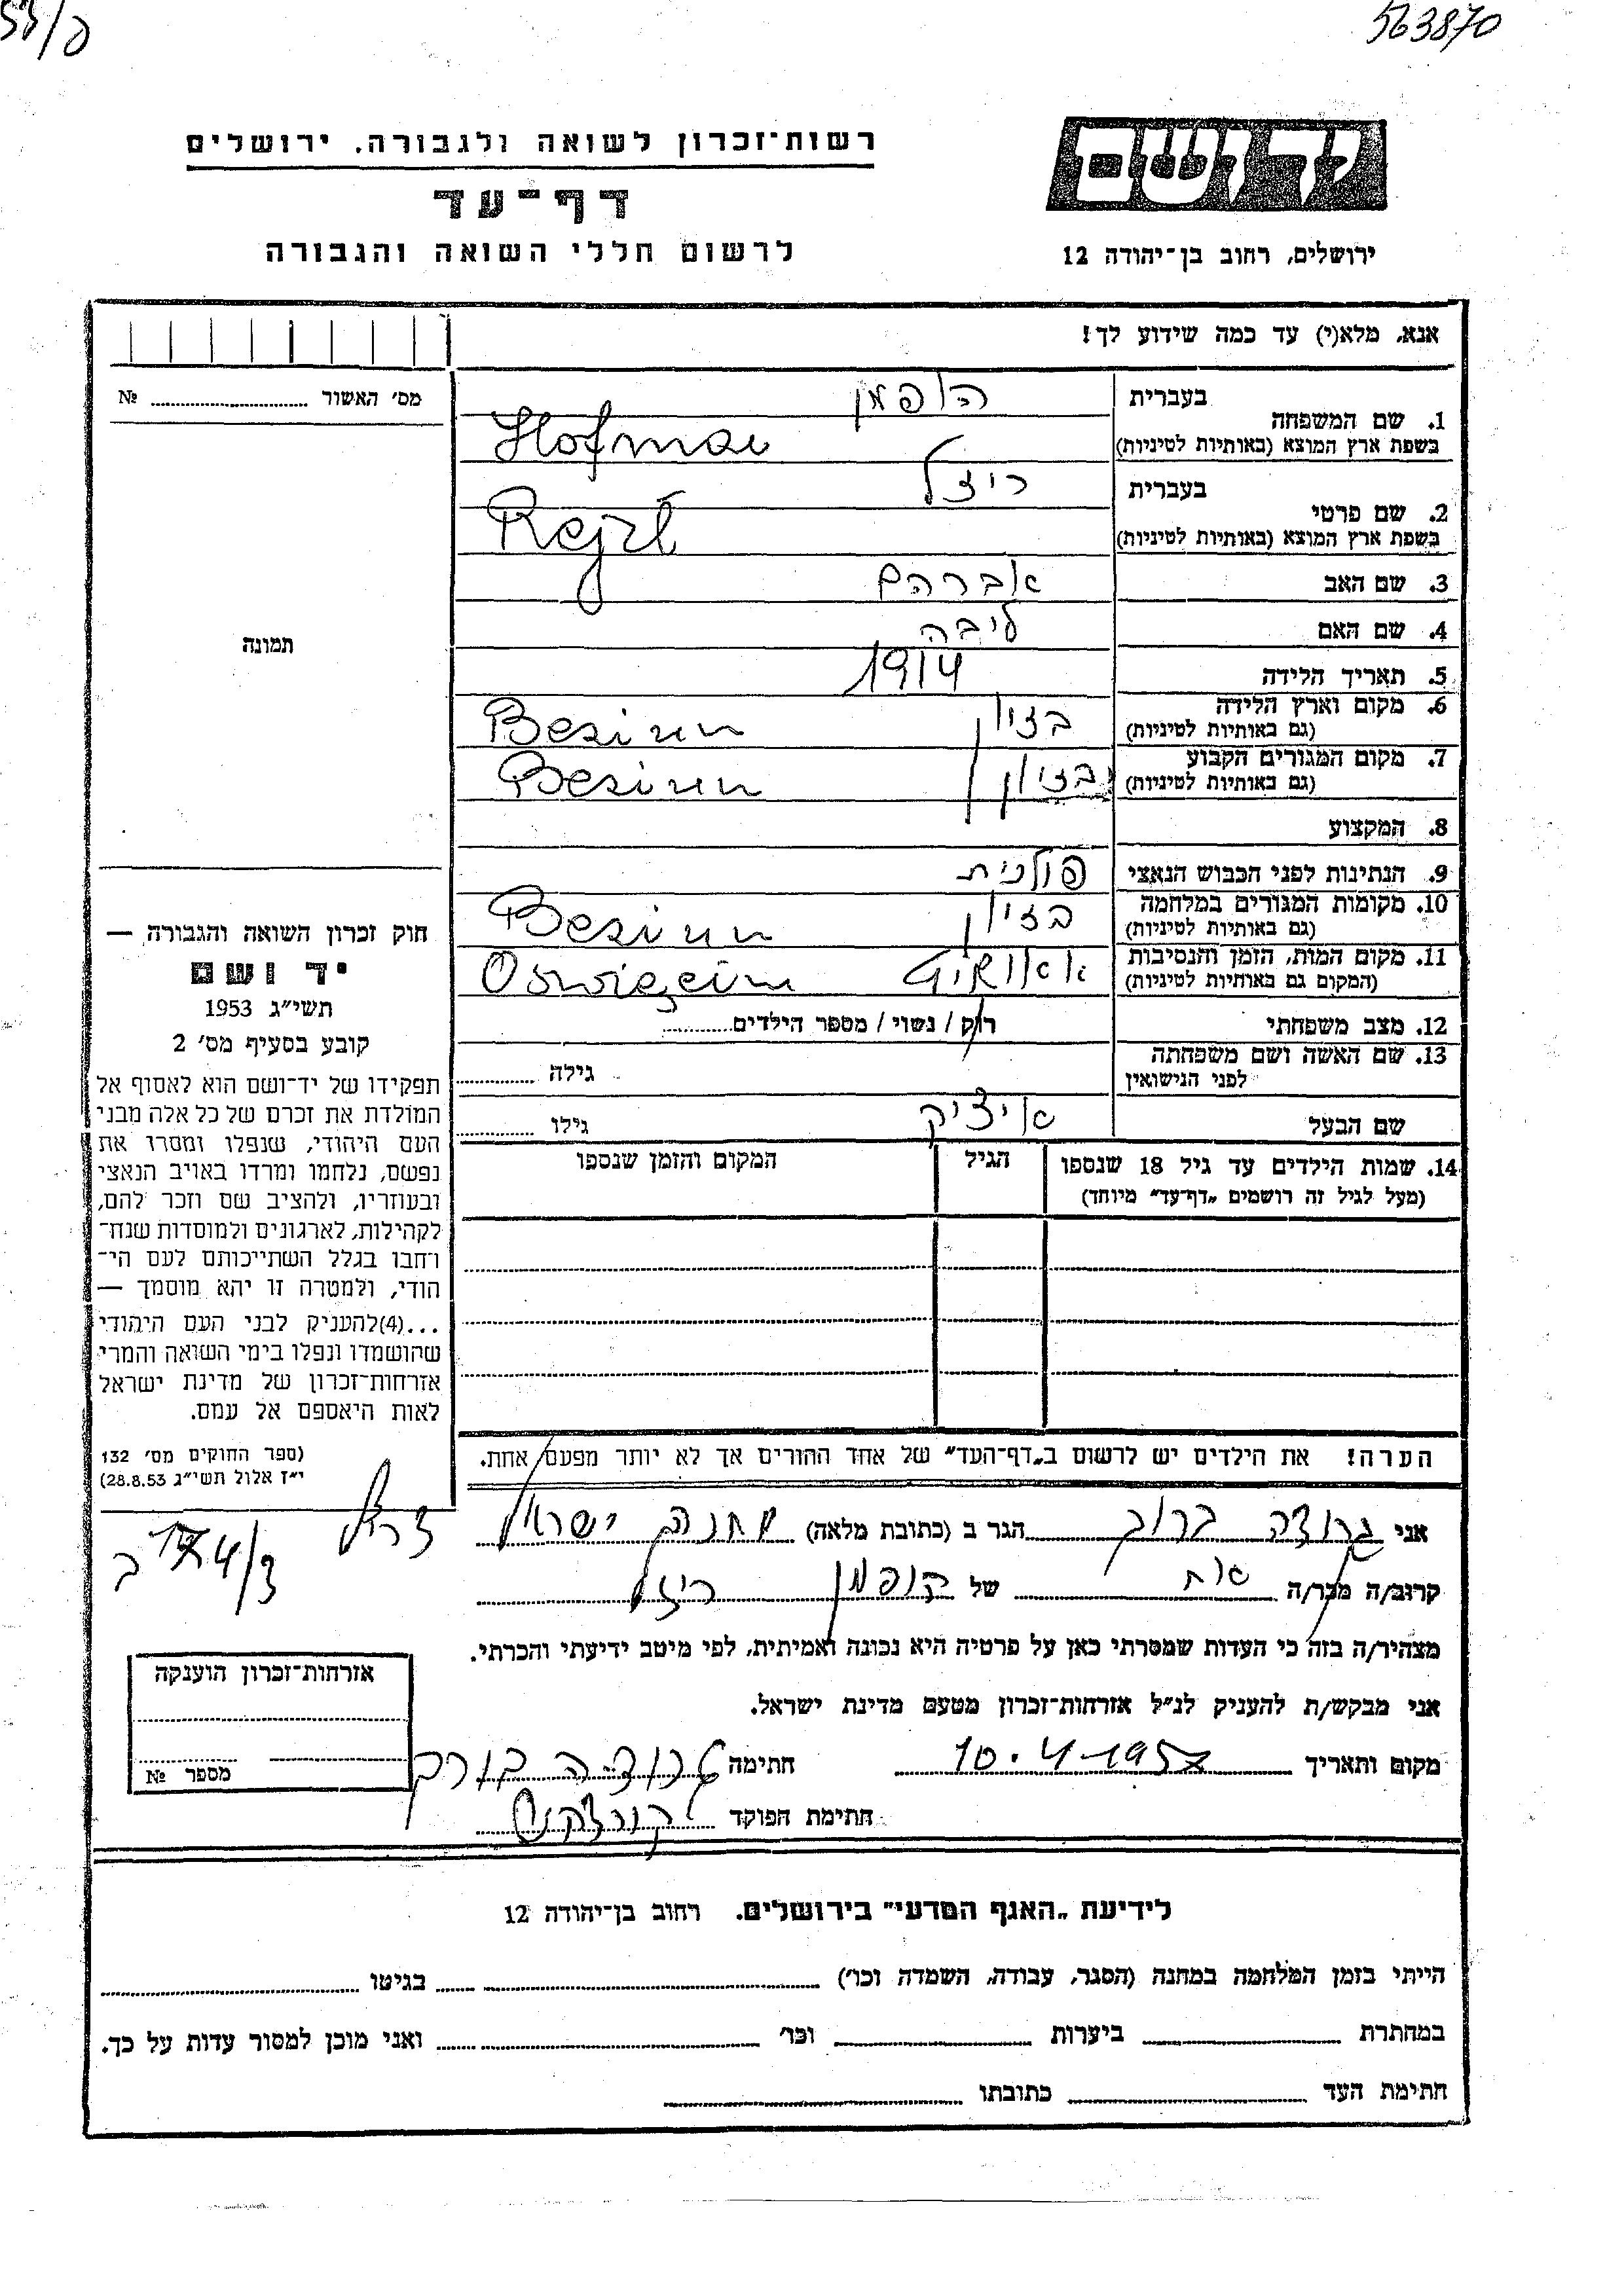 563870
רשות־זכרון לשואה ולגבורה. ירושלים
דף־עד
לרשום חללי השואה והגבורה
יד ושם
ירושלים, רחוב בן־יהודה 12
אנא, מלא(י) עד כמה שידוע לך!
מס׳ האשור № 
1. שם המשפחה
בעברית הופמן
בשפת ארץ המוצא (באותיות לטיניות) Hofman
2. שם פרטי
בעברית ריזל
בשפת ארץ המוצא (באותיות לטיניות) Rejzl
3. שם האב אברהם
4. שם האם ליבה
5. תאריך הלידה 1914
6. מקום וארץ הלידה בזין Besiun
(גם באותיות לטיניות)
7. מקום המגורים הקבוע בזין Besiun
(גם באותיות לטיניות)
8. המקצוע
9. הנתינות לפני הכבוש הנאצי פולנית
10. מקומות המגורים במלחמה בזין Besiun
(גם באותיות לטיניות)
11. מקום המות, הזמן והנסיבות
(המקום גם באותיות לטיניות)
12. מצב משפחתי רווק / נשוי / מספר הילדים
13. שם האשה ושם משפחתה
לפני הנישואין גילה
שם הבעל איציק גילו
14. שמות הילדים עד גיל 18 שנספו הגיל המקום והזמן שנספו
(מעל לגיל זה רושמים „דף־עד״ מיוחד)
תמונה
חוק זכרון השואה והגבורה, —
יד ושם
תשי״ג 1953
קובע בסעיף מס׳ 2
תפקידו של יד־ושם הוא לאסוף אל
המולדת את זכרם של כל אלה מבני
העם היהודי, שנפלו ומסרו את
נפשם, נלחמו ומרדו באויב הנאצי
ובעוזריו, ולהציב שם וזכר להם,
לקהילות, לארגונים ולמוסדות שנח־
רחבו בגלל השתייכותם לעם הי־
הודי, ולמטרה זו יהא מוסמך —
...(4)להעניק לבני העם היהודי
שהושמדו ונפלו בימי השואה והמרי
אזרחות־זכרון של מדינת ישראל
לאות היאספם אל עמם.
(ספר החוקים מס׳ 132
י״ז אלול תשי״ג 28.8.53)
הערה! את הילדים יש לרשום ב„דף־העד״ של אחד ההורים אך לא יותר מפעם אחת.
אני ברוך הגר ב (כתובת מלאה) מחנה ישראל
קרוב/ה מכר/ה אח של הופמן ריזל
מצהיר/ה בזה כי העדות שמסרתי כאן על פרטיה היא נכונה ואמיתית, לפי מיטב ידיעתי והכרתי.
אני מבקש/ת להעניק לנ״ל אזרחות־זכרון מטעם מדינת ישראל.
מקום ותאריך חתימה
חתימת הפוקד
אזרחות־זכרון הוענקה
מספר №
לידיעת „האגף המדעי״ בירושלים. רחוב בן־יהודה 12
הייתי בזמן המלחמה במחנה (הסגר, עבודה, השמדה וכו׳) בגיטו
במחתרת ביערות וכו׳ ואני מוכן למסור עדות על כך.
חתימת העד כתובתו